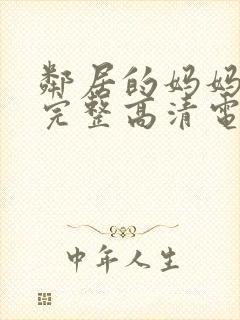 鄰居的妈妈
完整高清電
中年人生